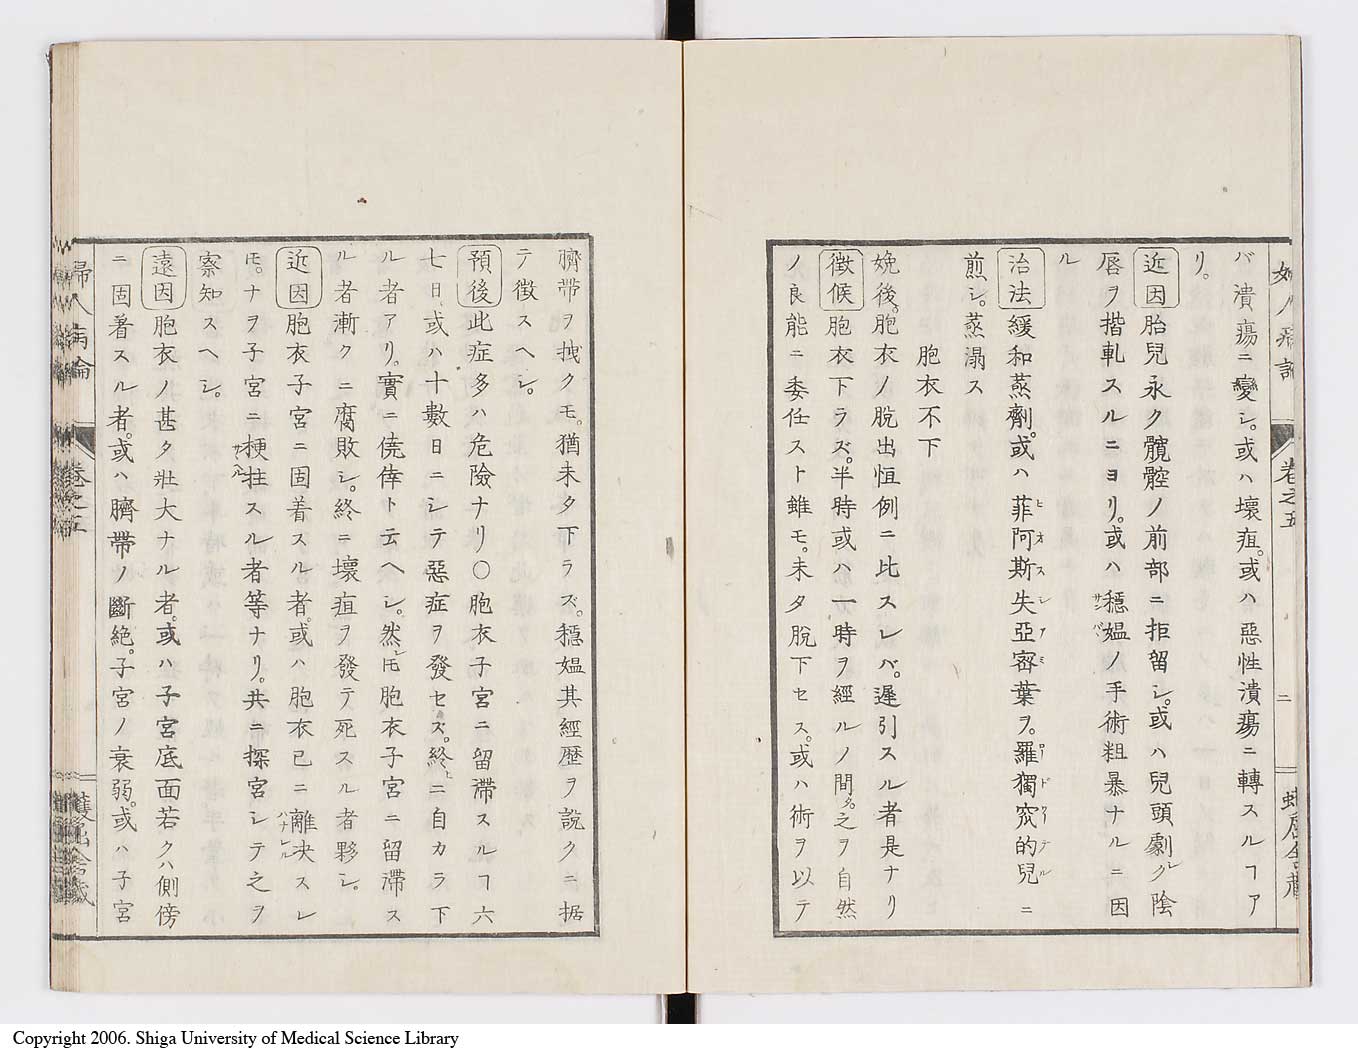 バ潰瘍ニ變シ。或ハ壞疽。或ハ惡性潰瘍ニ轉スルヿア
リ。
近因 胎兒永ク髖腟ノ前部ニ拒留シ。或ハ兒頭劇シク陰
唇ヲ揩軋スルニヨリ。或ハ穩媼サンバノ手術粗暴ナルニ因
ル
治法 緩和蒸劑。或ハ菲阿斯失亞密葉ヲ。羅獨究的兒ニ
煎シ。蒸溻ス
胞衣不下
娩後。胞衣ノ脫出恒例ニ比スレバ。遲引スル者是ナリ
徴候 胞衣下ラズ。半時或ハ一時ヲ經ルノ間タ。之ヲ自然
ノ良能ニ委任スト雖モ。未タ脫下セス。或ハ術ヲ以テ
臍帶ヲ拽クモ。猶未タ下ラズ。穩媼其經歷ヲ說クニ据
テ徴スヘシ。
預後 此症多ハ危險ナリ○胞衣子宮ニ留滯スルヿ六
七日、或ハ十數日ニシテ惡症ヲ發セズ。終ヒニ自カラ下
ル者アリ。實ニ僥倖ト云ヘシ。然レ𪜈胞衣子宮ニ留滯ス
ル者漸クニ腐敗シ。終ニ壞疽ヲ發テ死スル者夥シ。
近因 胞衣子宮ニ固着スル者。或ハ胞衣已ニ離決ハナレルスレ
𪜈。ナヲ子宮ニ梗拄サハルスル者等ナリ。共ニ探宮シテ之ヲ
察知スヘシ。
遠因 胞衣ノ甚タ壯大ナル者。或ハ子宮底面若クハ側傍
ニ固著スル者。或ハ臍帶ノ斷絶。子宮ノ衰弱。或ハ子宮
婦人病論
卷之五
二
Copyright 2006. Shiga University of Medical Science Library